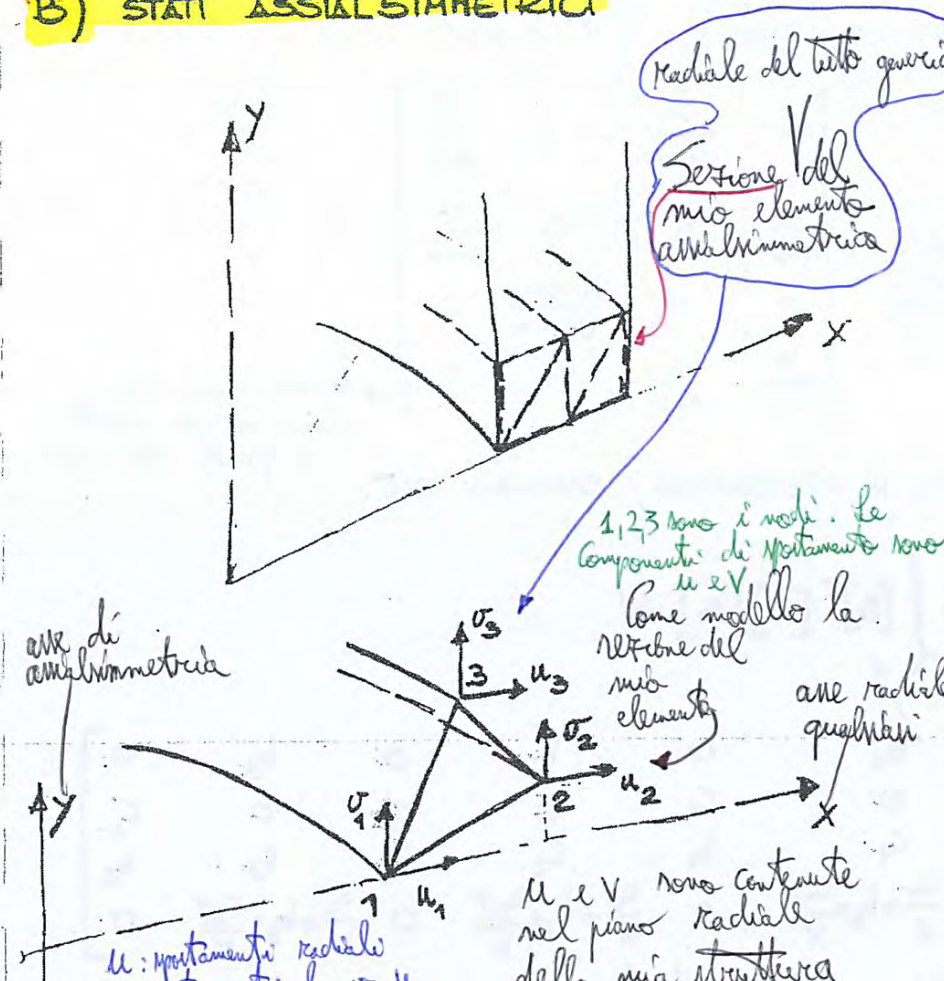 B) STATI ASSIALSIMMETRICI
radiale del tutto generic
Sezione del
mio elemento
assialsimmetrico
Y
X
1,2,3 sono i nodi. Le
componenti di spostamento sono
u e V
Come modello la
sezione del
mio
elemento
asse di
assialsimmetria
asse radiale
qualsiasi
v3
3
u3
v2
2
u2
v1
1
u1
Y
X
u e V sono contenute
nel piano radiale
della mia struttura
u: spostamenti radiali